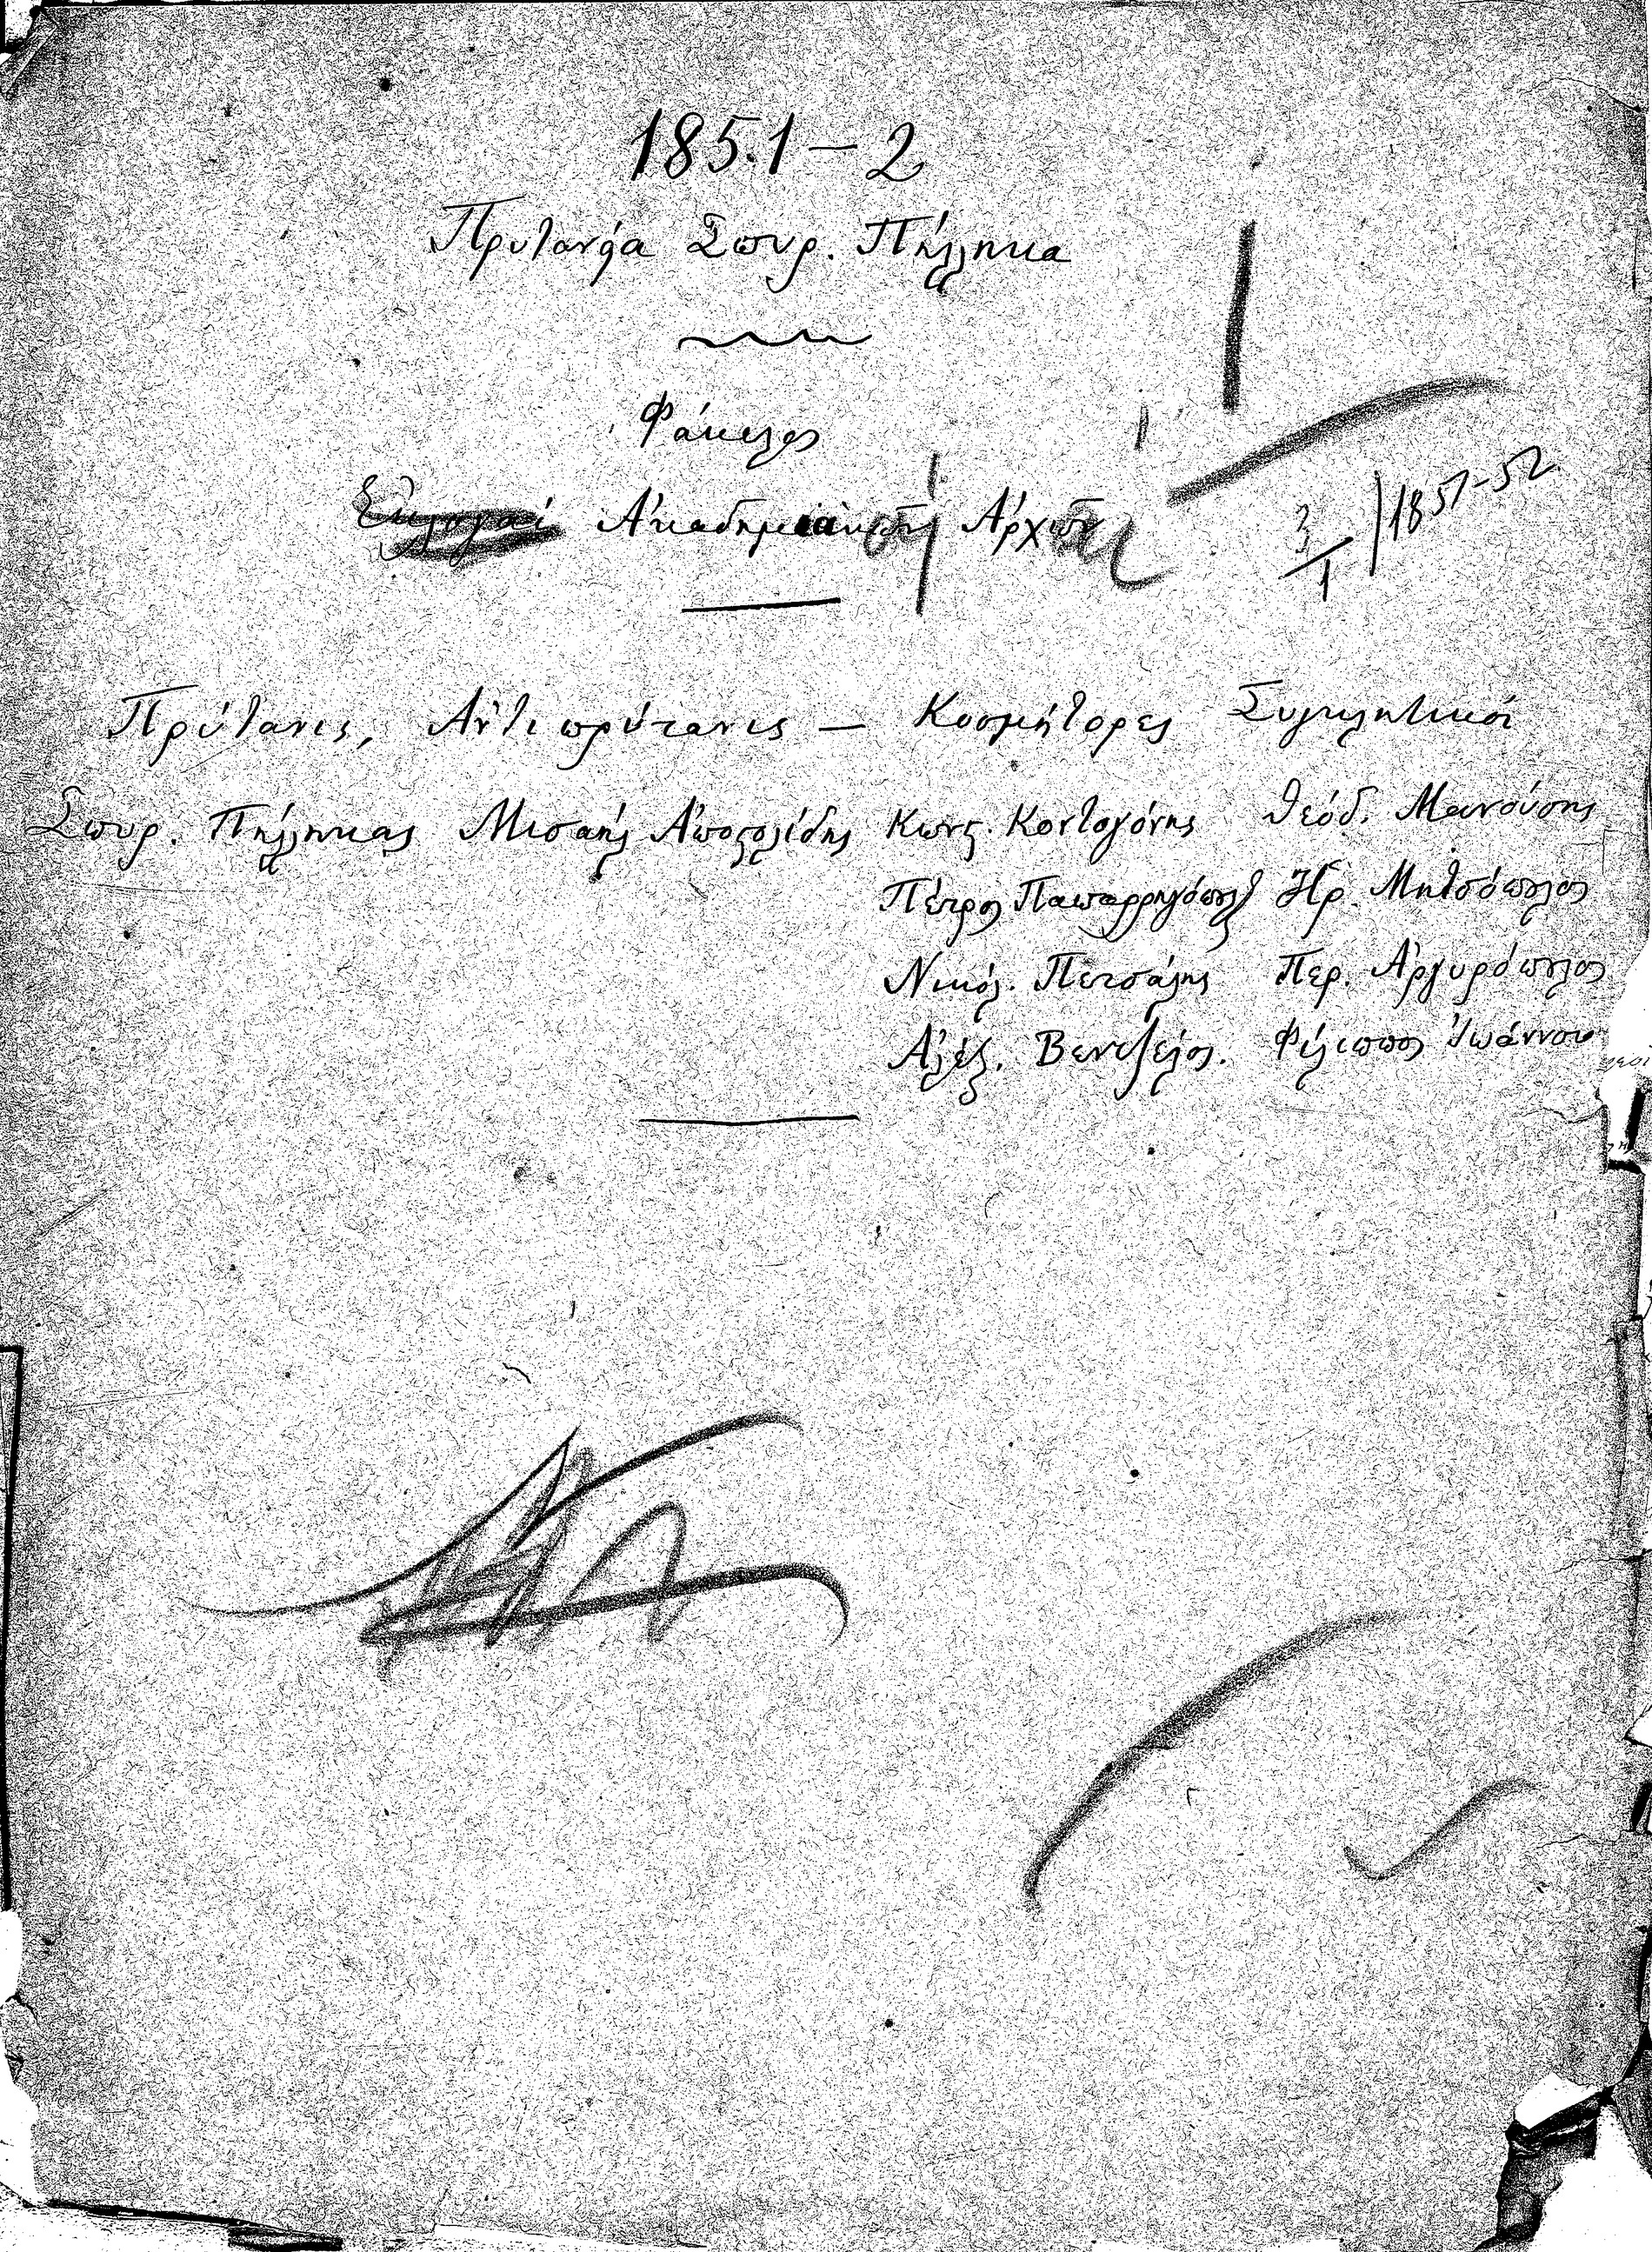 1851-2
Πρυτανεία Σπυρ. Πήλληκα
Φάκελος
Ἐκλογαί Ἀκαδημαϊκαὶ Ἀρχαὶ
3/1 ) 1851-52
Πρύτανις, Ἀντιπρύτανις — Κοσμήτορες Συγκλητικοί
Σπυρ. Πήλληκας Μισαὴλ Ἀποστολίδης Κωνστ. Κοντογόνης Θεόδ. Μανούσης
Πέτρος Παπαρρηγόπουλος Ἡρ. Μητσόπουλος
Νικόλ. Πετσάλης Περ. Ἀργυρόπουλος
Ἀλέξ. Βενιζέλος. Φίλιππος Ἰωάννου